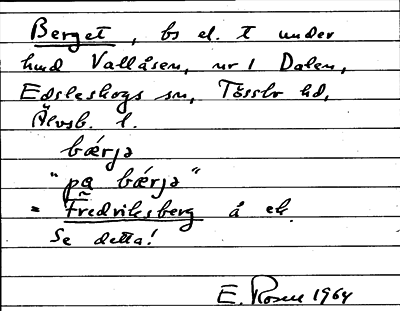 Berget, bs el. t under
hmd Vallåsen, nr 1 Dalen,
Edsleskogs sn, Tössbo hd,
Älvsb. l.
bǽrjə
"pa bǽrjə"
= Fredriksberg å ek.
Se detta!
E. Rosell 1964